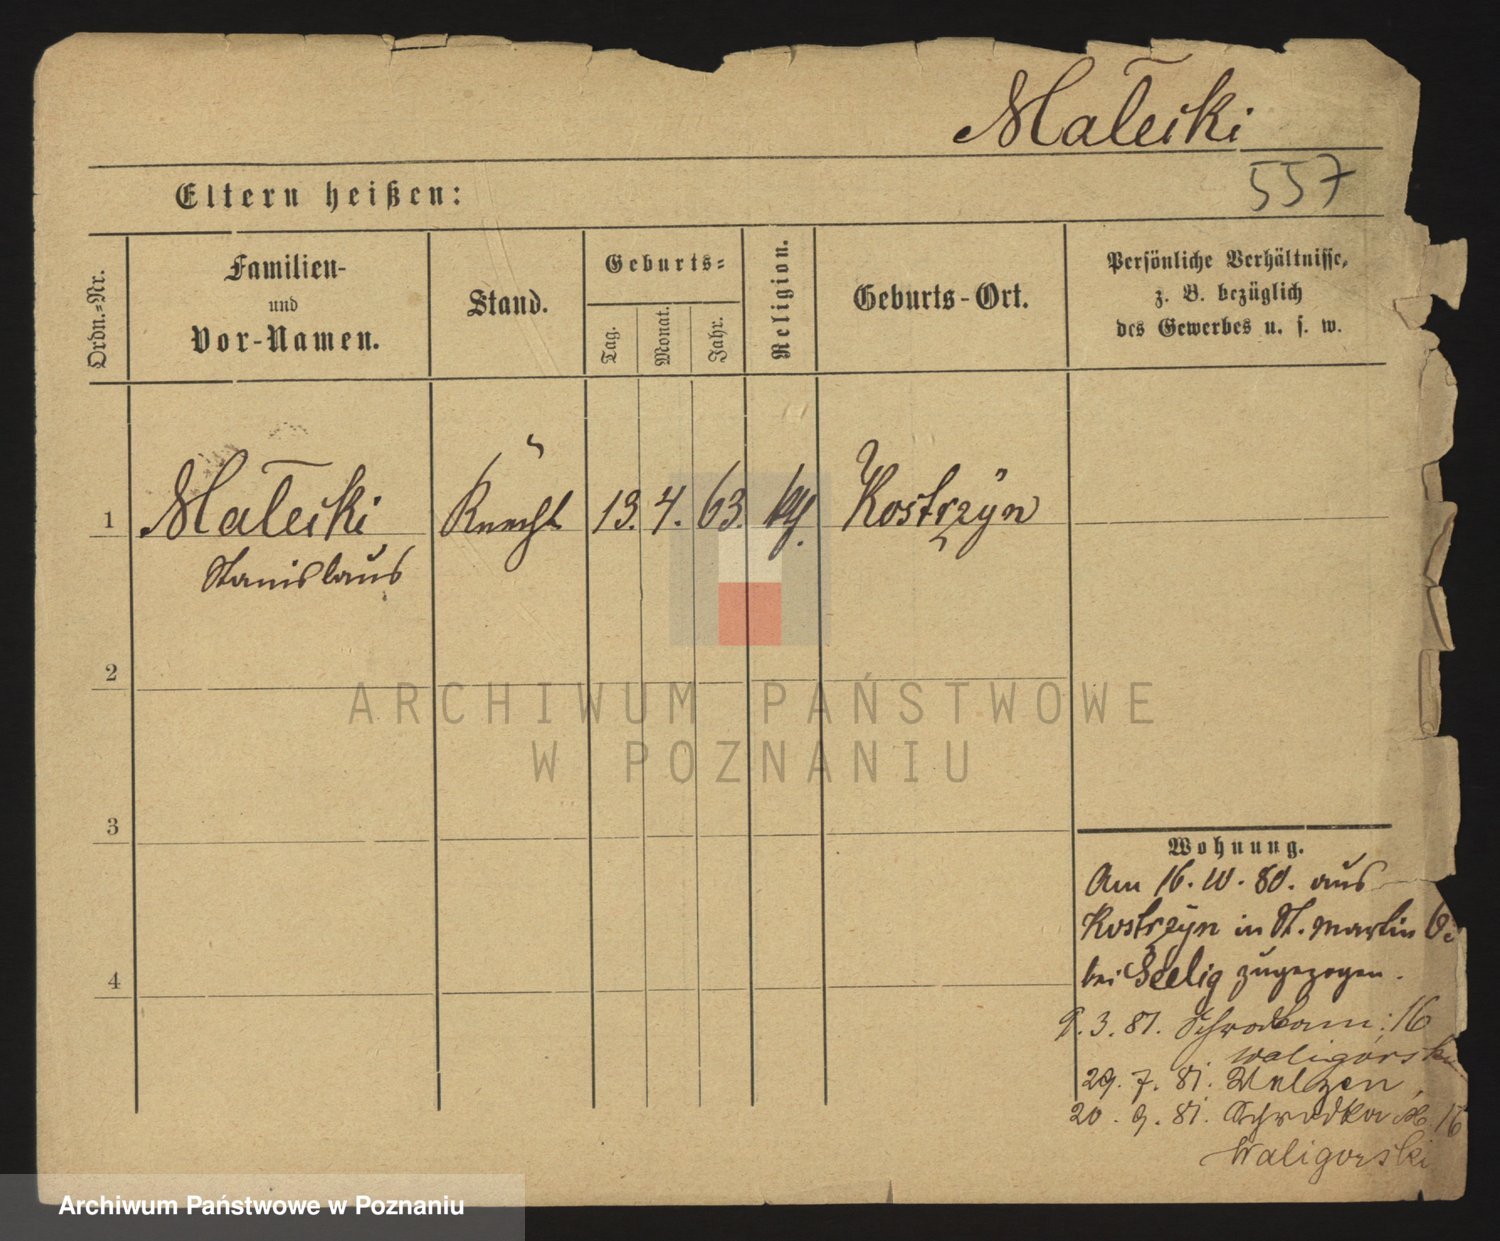 Małecki
557
Eltern heißen:
Ordn.-Nr.
Familien-
und
Vor-Namen.
Stand.
Geburts-
Tag.
Monat.
Jahr.
Religion.
Geburts-Ort.
Persönliche Verhältnisse,
z. B. bezüglich
des Gewerbes u. s. w.
1
Małecki
Stanislaus
Knecht
13.
4.
63.
kth.
Kostrzyn
2
3
4
Wohnung.
Am 16. 10. 80. aus
Kostrzyn in St. Martin
bei Seelig zugezogen.
9. 3. 81. 16
Waligorski
29. 7. 81.
20. 9. 81. Schrodka 16
Waligorski
ARCHIWUM PAŃSTWOWE
W POZNANIU
Archiwum Państwowe w Poznaniu